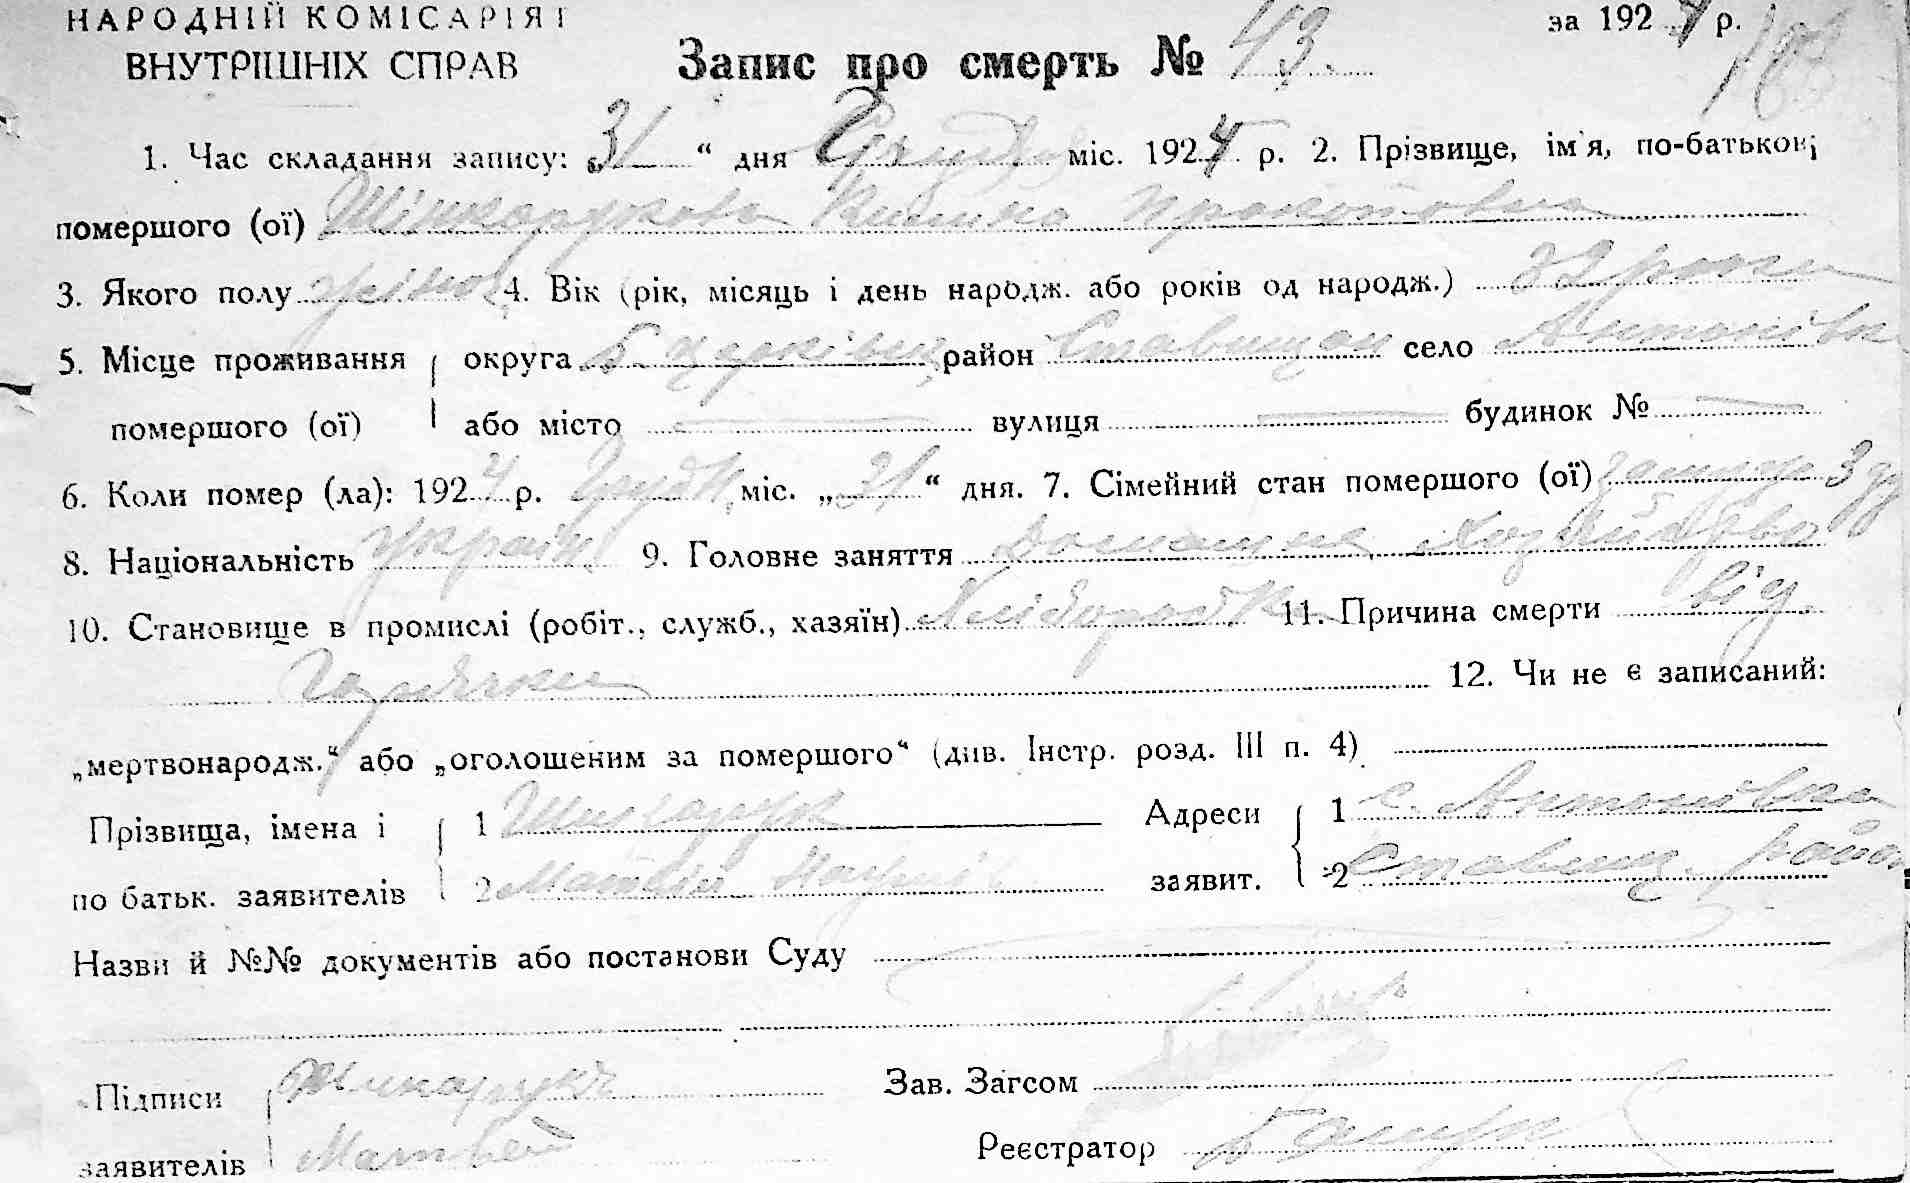 НАРОДНІЙ КОМІСАРІЯТ
ВНУТРІШНІХ СПРАВ
за 1924 р.
Запис про смерть № 43.
1. Час складання запису: „31“ дня Грудня міс. 1924 р. 2. Прізвище, ім'я, по-батькові
помершого (ої) Шинкарукова Прокоповна
3. Якого полу жіноч 4. Вік (рік, місяць і день народж. або років од народж.) 32 роки
5. Місце проживання округа Б церківськ район Ставищан село Антонівка
помершого (ої) або місто — вулиця — будинок № —
6. Коли помер (ла): 1924 р. Грудн міс. „31“ дня. 7. Сімейний стан помершого (ої)
8. Національність україн. 9. Головне заняття Домашнє
10. Становище в промислі (робіт., служб., хазяїн) Хліборобка 11. Причина смерти від
горячки 12. Чи не є записаний:
„мертвонародж.“ або „оголошеним за помершого“ (див. Інстр. розд. III п. 4)
Прізвища, імена і 1 Шинкарук Адреси 1 с. Антонівка
по батьк. заявителів 2 Матвій заявит. 2 Ставищ. район
Назви й №№ документів або постанови Суду
Підписи Шинкарукъ Зав. Загсом
заявителів Матвей Реєстратор